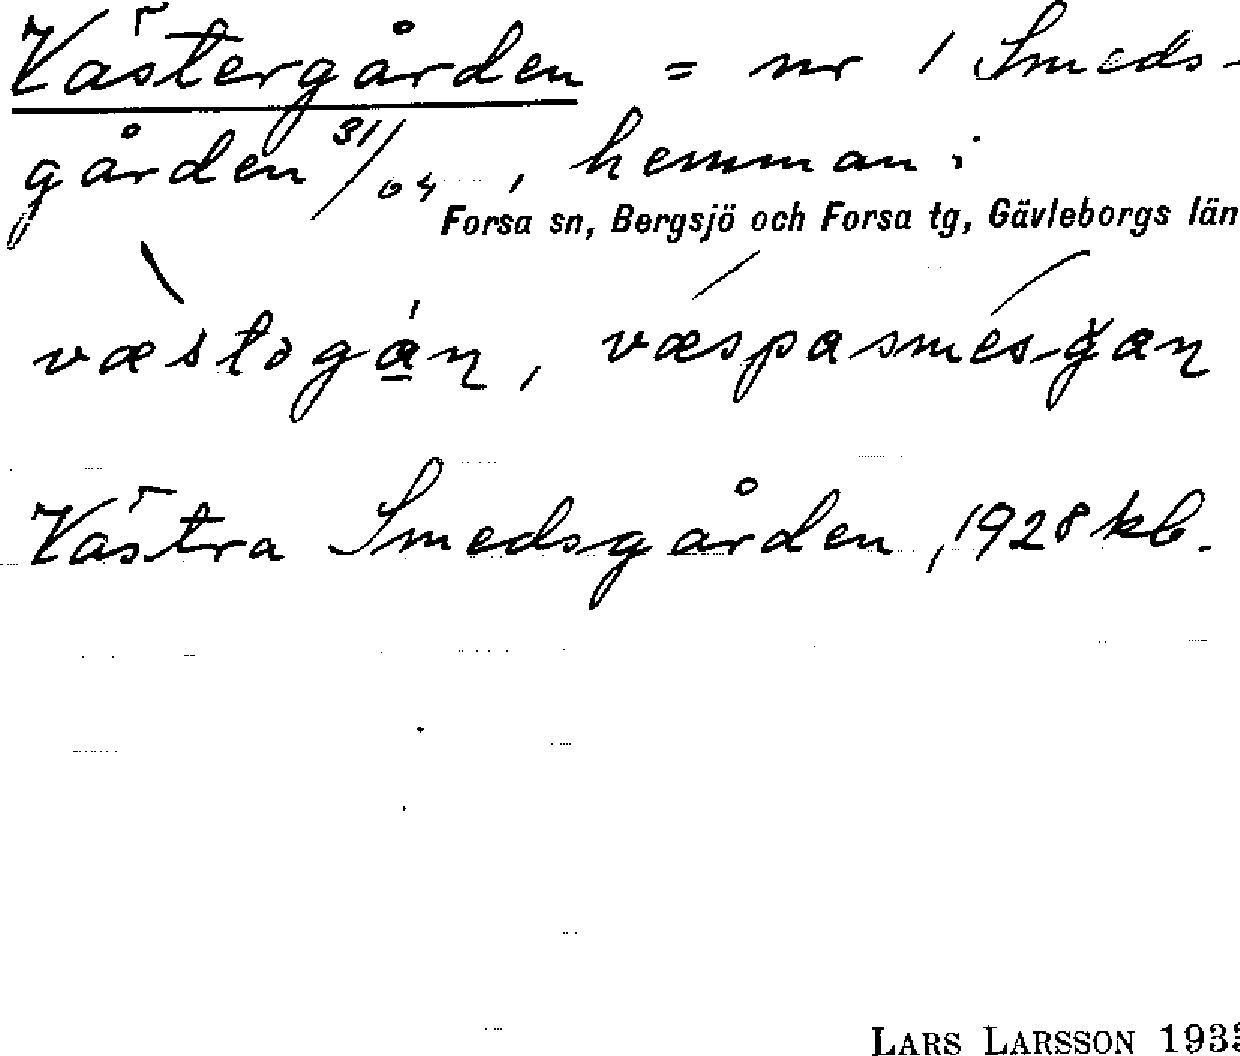 Västergården = nr 1 Smeds-
gården 31/64, hemman i
Forsa sn, Bergsjö och Forsa tg, Gävleborgs län
Västra Smedsgården, 1928 kb.
LARS LARSSON 193